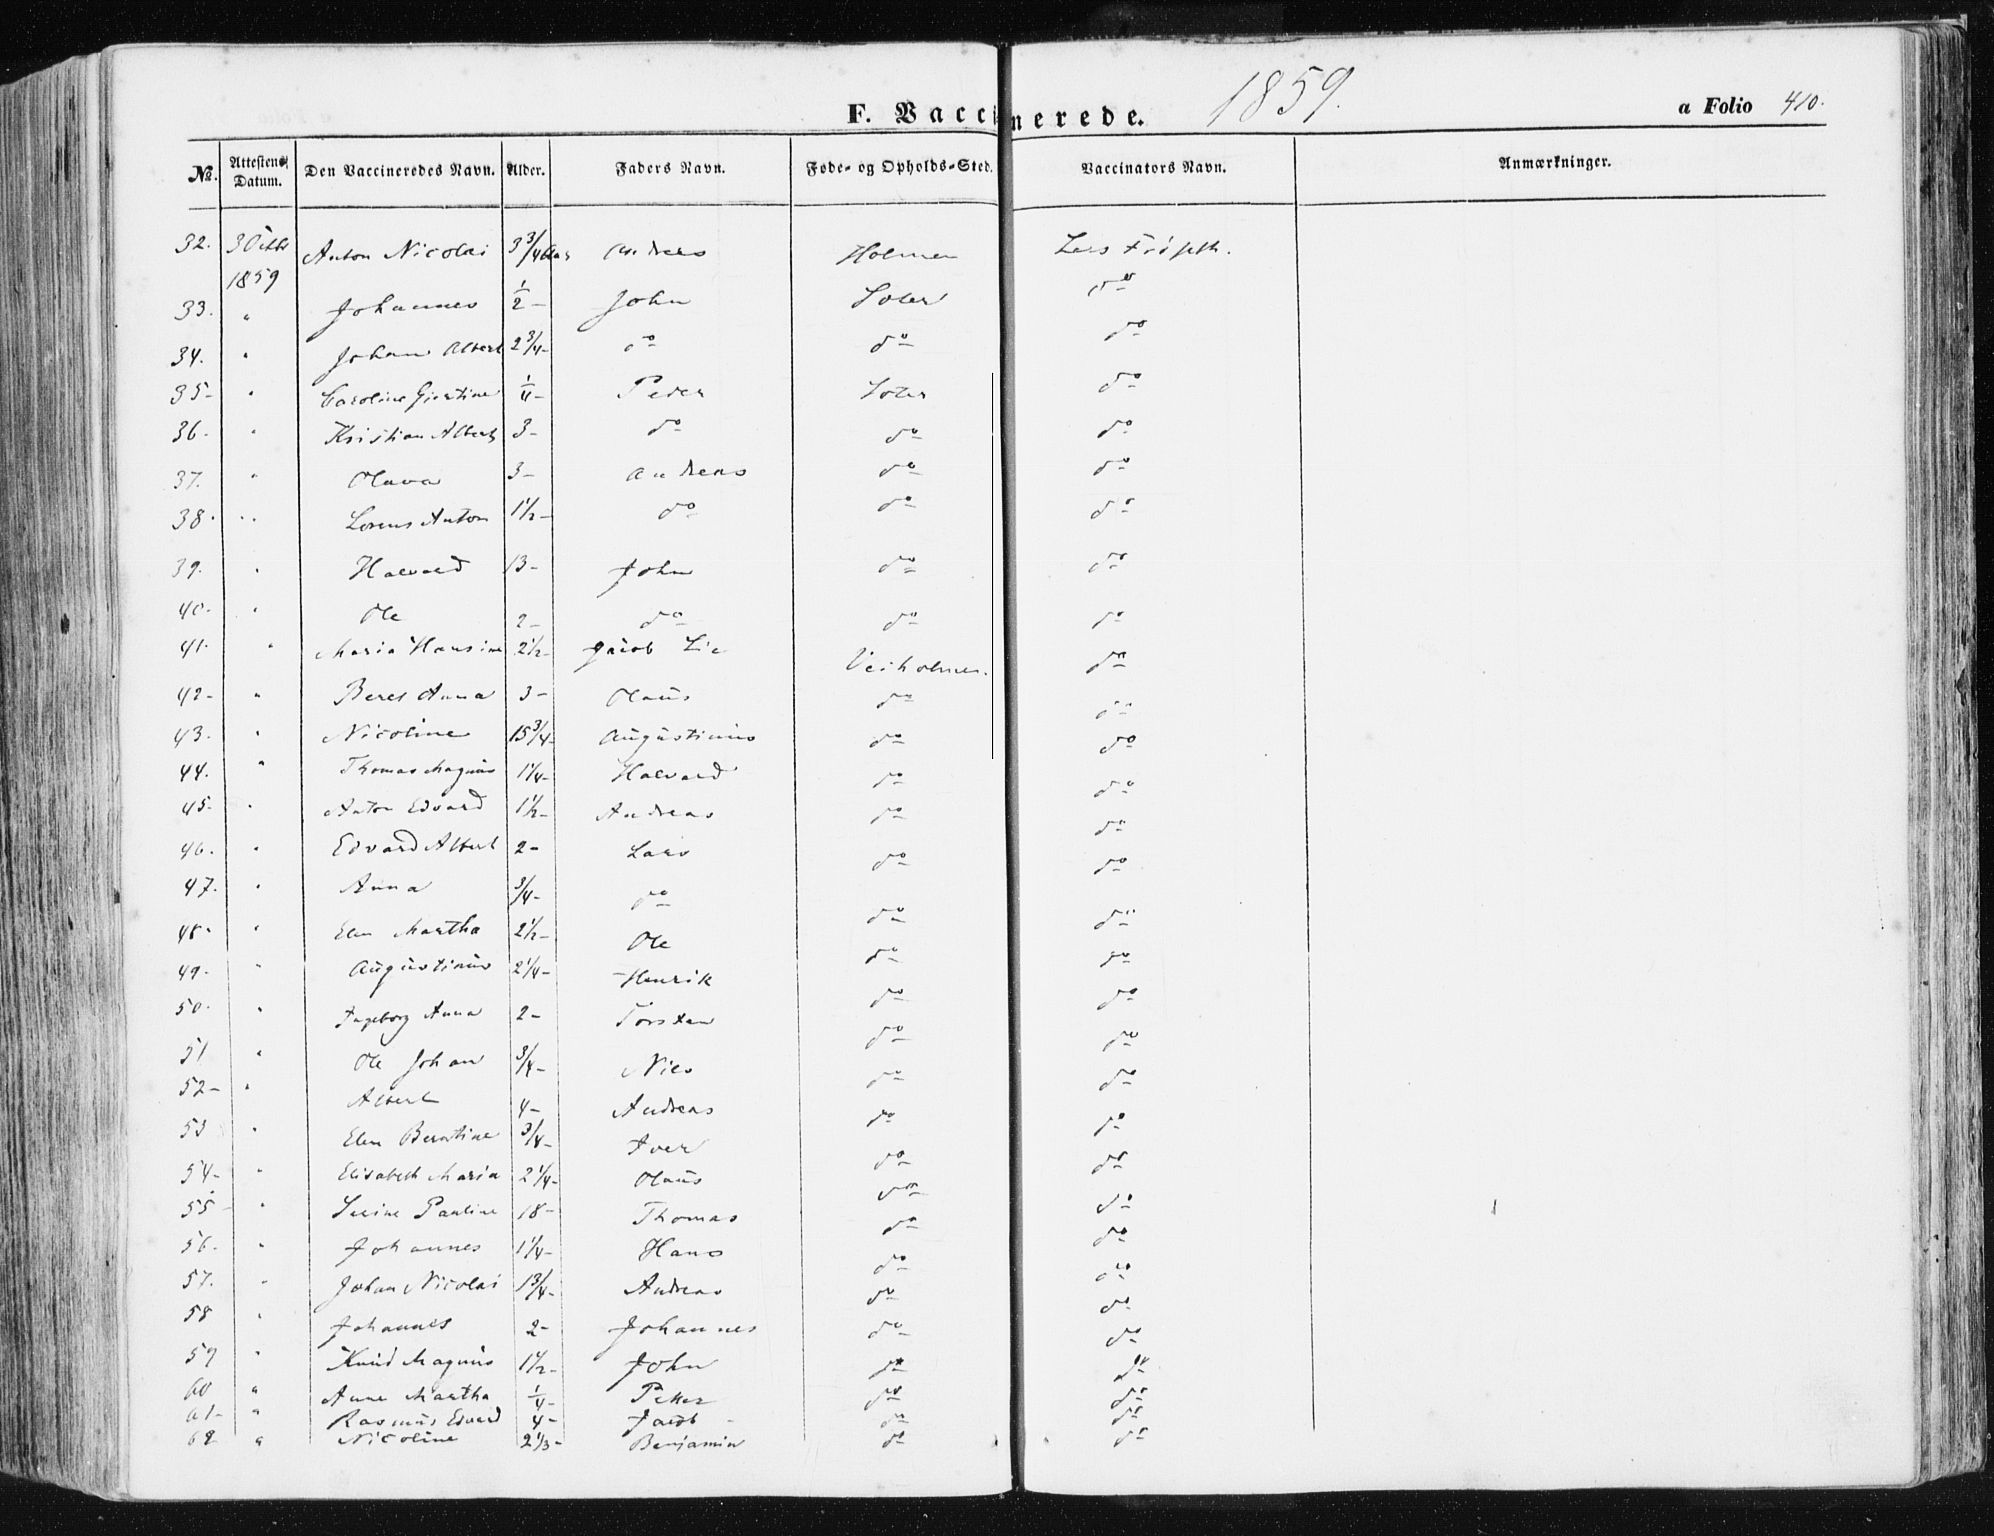 F. Vaccinerede. 1859. a Folio 410.
No. Attestens Datum. Den Vaccineredes Navn. Alder. Faders Navn. Føde- og Opholds-Sted. Vaccinators Navn. Anmærkninger.
32. 30 1859 Anton Nicolai 3 3/4 Aar Andreas Holmen Lars
33. " Johannes 1/2 - John do
34. " Johan Albert 2 3/4 - do do do
35 - " Caroline 1/4 - Peder do
36. " Kristian Albert 3 - do do do
37. " Olava 3 - Andreas do do
38. " Lorens Anton 1 1/2 - do do do
39. " Halvard 13 - John do do
40. " Ole 2 - do do do
41. " Maria Hansine 2 1/2 - Jacob Lie Veiholmen. do
42 - " Beret Anna 3 - Olaus do do
43. " Nicoline 15 3/4 - Augustinus do do
44. " Thomas Magnus 1 1/4 - Halvard do do
45. " Anton Edvard 1 1/2 - Andreas do do
46. " Edvard Albert 2 - Lars do do
47. " Anna 3/4 - do do do
48. " Elen Martha 2 1/2 - Ole do do
49. " Augustinus 2 1/4 - Henrik do do
50. " Ingeborg Anna 2 - Torsten do do
51 " Ole Johan 3/4 - Nils do do
52 - " Albert 4 - Andreas do do
53 " Elen Berntine 3/4 - Iver do do
54 - " Elisabeth Maria 2 1/4 - Olaus do do
55 - " Pauline 18 - Thomas do do
56. " Johannes 1 1/4 - Hans do do
57. " Johan Nicolai 1 3/4 - Andreas do do
58 " Johannes 2 - Johannes do do
59 " Knud Magnus 1 1/2 - John do do
60 " Anne Martha 1/4 - Petter do do
61 - " Rasmus Edvard 4 - Jacob - do do
62 " Nicoline 2 1/3 - Benjamin do do